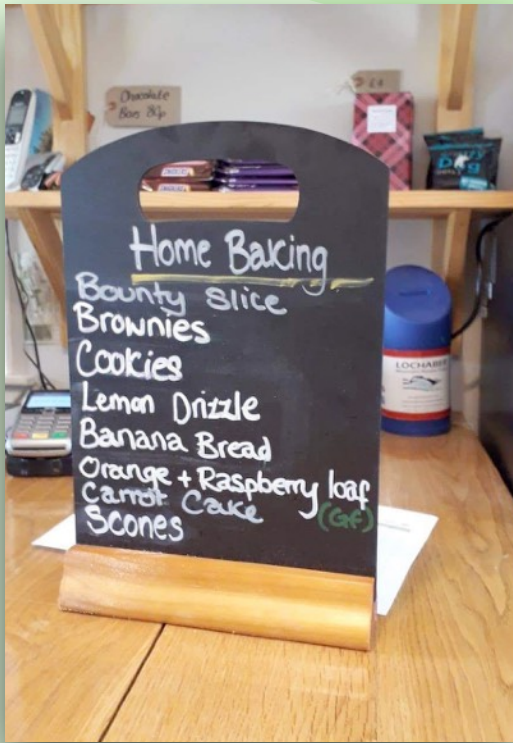 Chocolate
Bars 80p
£4
SNICKERS
Home Baking
Bounty Slice
Brownies
Cookies
Lemon Drizzle
Banana Bread
Orange + Raspberry loaf
(GF)
Carrot Cake
Scones
LOCHABER